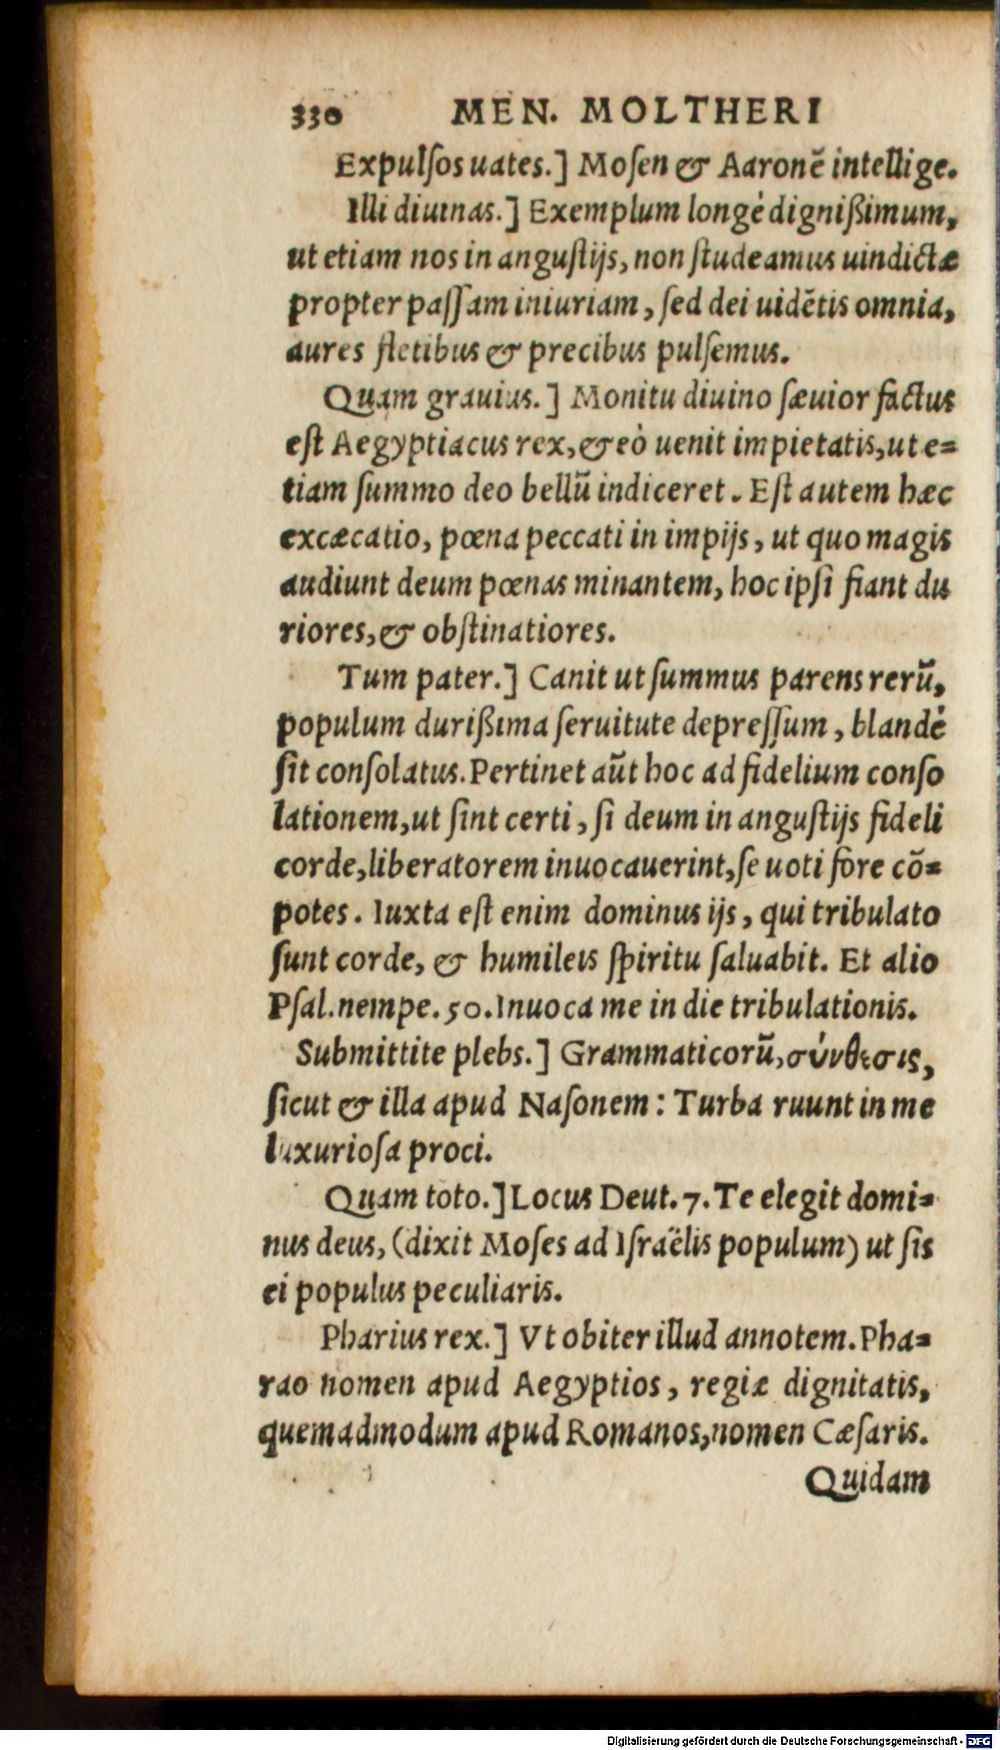 330 MEN. MOLTHERI
Expulſos uates.] Moſen & Aaronē intellige.
Illi diuinas.] Exemplum longè digniſſimum,
ut etiam nos in anguſtijs, non ſtudeamus uindictæ
propter paſſam iniuriam, ſed dei uidētis omnia,
aures fletibus & precibus pulſemus.
Quam grauius.] Monitu diuino ſæuior factus
eſt Aegyptiacus rex, & eò uenit impietatis, ut e=
tiam ſummo deo bellū indiceret. Eſt autem hæc
excæcatio, pœna peccati in impijs, ut quo magis
audiunt deum pœnas minantem, hoc ipſi fiant du
riores, & obſtinatiores.
Tum pater.] Canit ut ſummus parens rerū,
populum duriſſima ſeruitute depreſſum, blandè
ſit conſolatus. Pertinet aūt hoc ad fidelium conſo
lationem, ut ſint certi, ſi deum in anguſtijs fideli
corde, liberatorem inuocauerint, ſe uoti fore cō=
potes. Iuxta eſt enim dominus ijs, qui tribulato
ſunt corde, & humileis ſpiritu ſaluabit. Et alio
Pſal. nempe. 50. Inuoca me in die tribulationis.
Submittite plebs.] Grammaticorū, σύνθεσις,
ſicut & illa apud Naſonem: Turba ruunt in me
luxurioſa proci.
Quam toto.] Locus Deut. 7. Te elegit domi=
nus deus, (dixit Moſes ad Iſraëlis populum) ut ſis
ei populus peculiaris.
Pharius rex.] Vt obiter illud annotem. Pha=
rao nomen apud Aegyptios, regiæ dignitatis,
quemadmodum apud Romanos, nomen Cæſaris.
Quidam
Digitalisierung gefördert durch die Deutsche Forschungsgemeinschaft - DFG